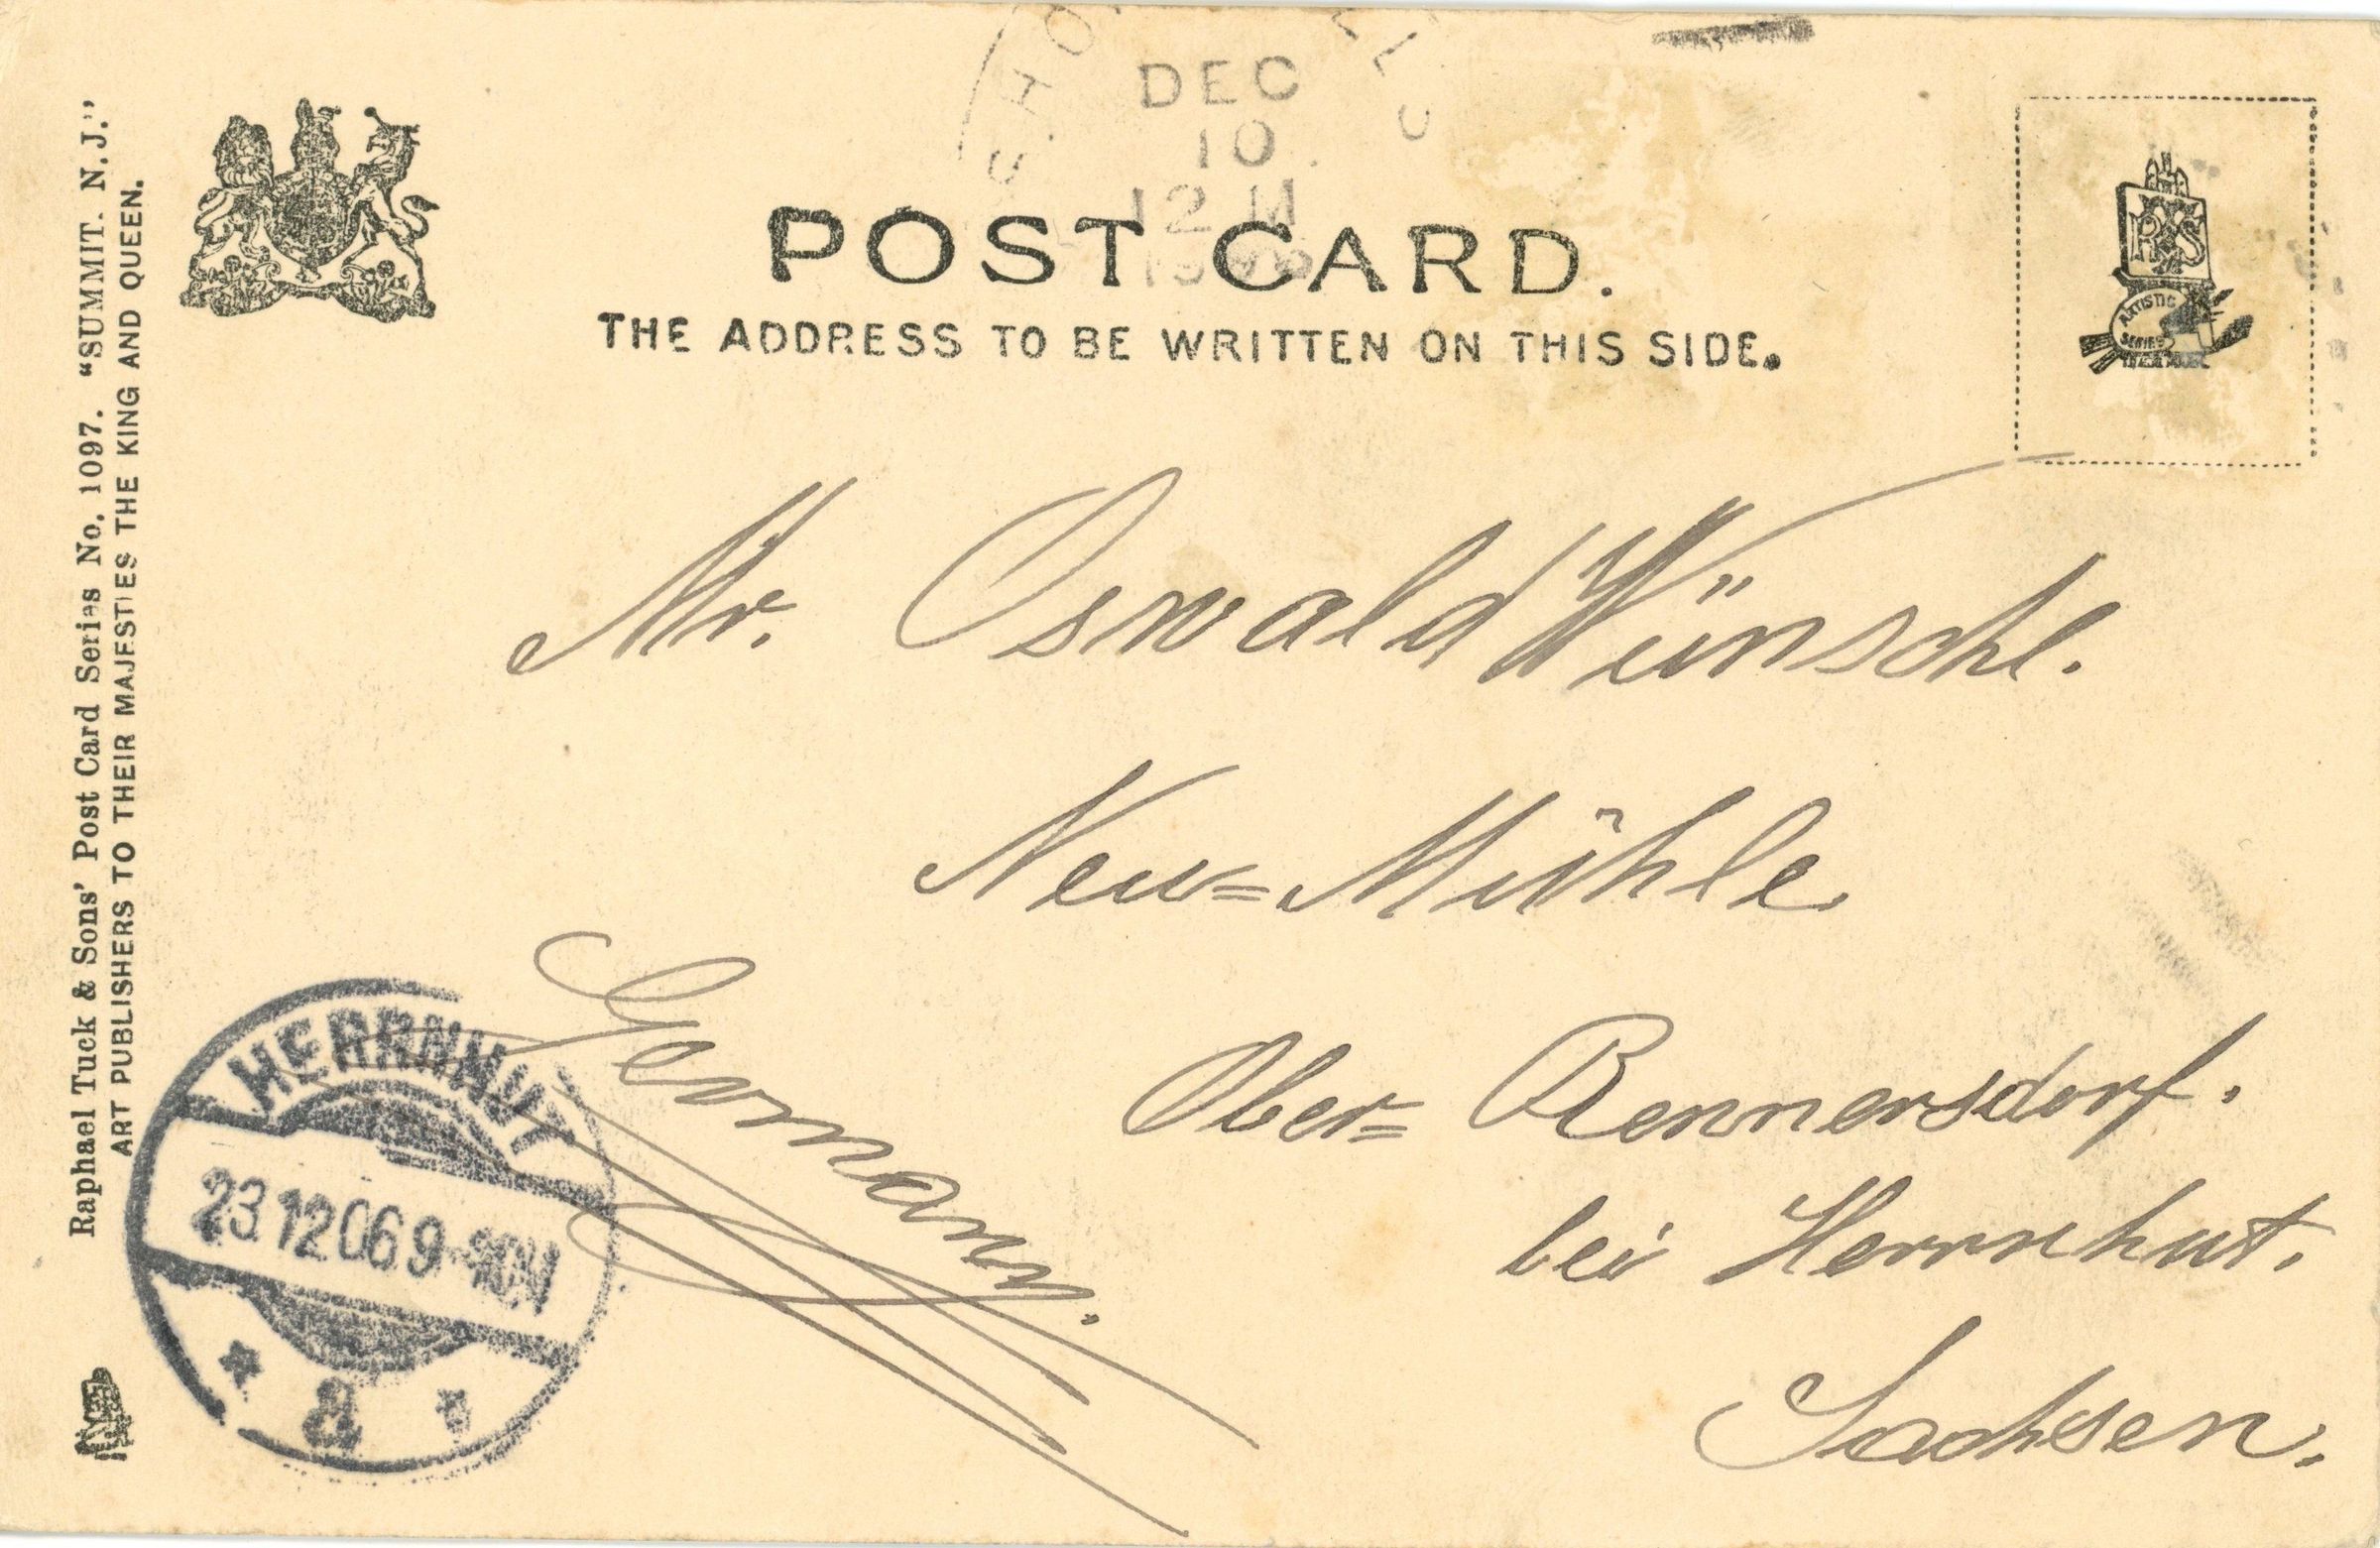 DEC
10
12 M
POST CARD.
THE ADDRESS TO BE WRITTEN ON THIS SIDE.
Raphael Tuck & Sons' Post Card Series No. 1097. "SUMMIT. N.J."
ART PUBLISHERS TO THEIR MAJESTIES THE KING AND QUEEN.
R T & S
ARTISTIC
SERIES
Mr. Oswald Wünsche.
Neu=Mühle
Ober= Rennersdorf.
bei Herrnhut.
Sachsen.
Germany.
HERRNHUT
23 12 06 9-10V
* a *